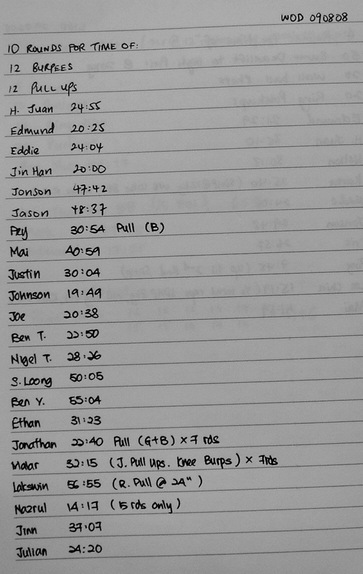 WOD 090808
10 ROUNDS FOR TIME OF:
12 BURPEES
12 PULL UPS
H. Juan 24:55
Edmund 20:25
Eddie 24:04
Jin Han 20:00
Jonson 47:42
Jason 48:37
30:54 Pull (B)
Mai 40:59
Justin 30:04
Johnson 19:49
Joe 20:38
Ben T. 22:50
Nigel T. 28:26
S. Loong 50:05
Ben Y. 55:04
Ethan 31:23
Jonathan 22:40 Pull (G+B) x 7 rds
Malar 32:15 (J. Pull ups. Knee Burps) x 7rds
Lakswin 56:55 (R. Pull @ 24")
Nazrul 14:17 (5 rds only)
Jinn 37:07
Julian 24:20